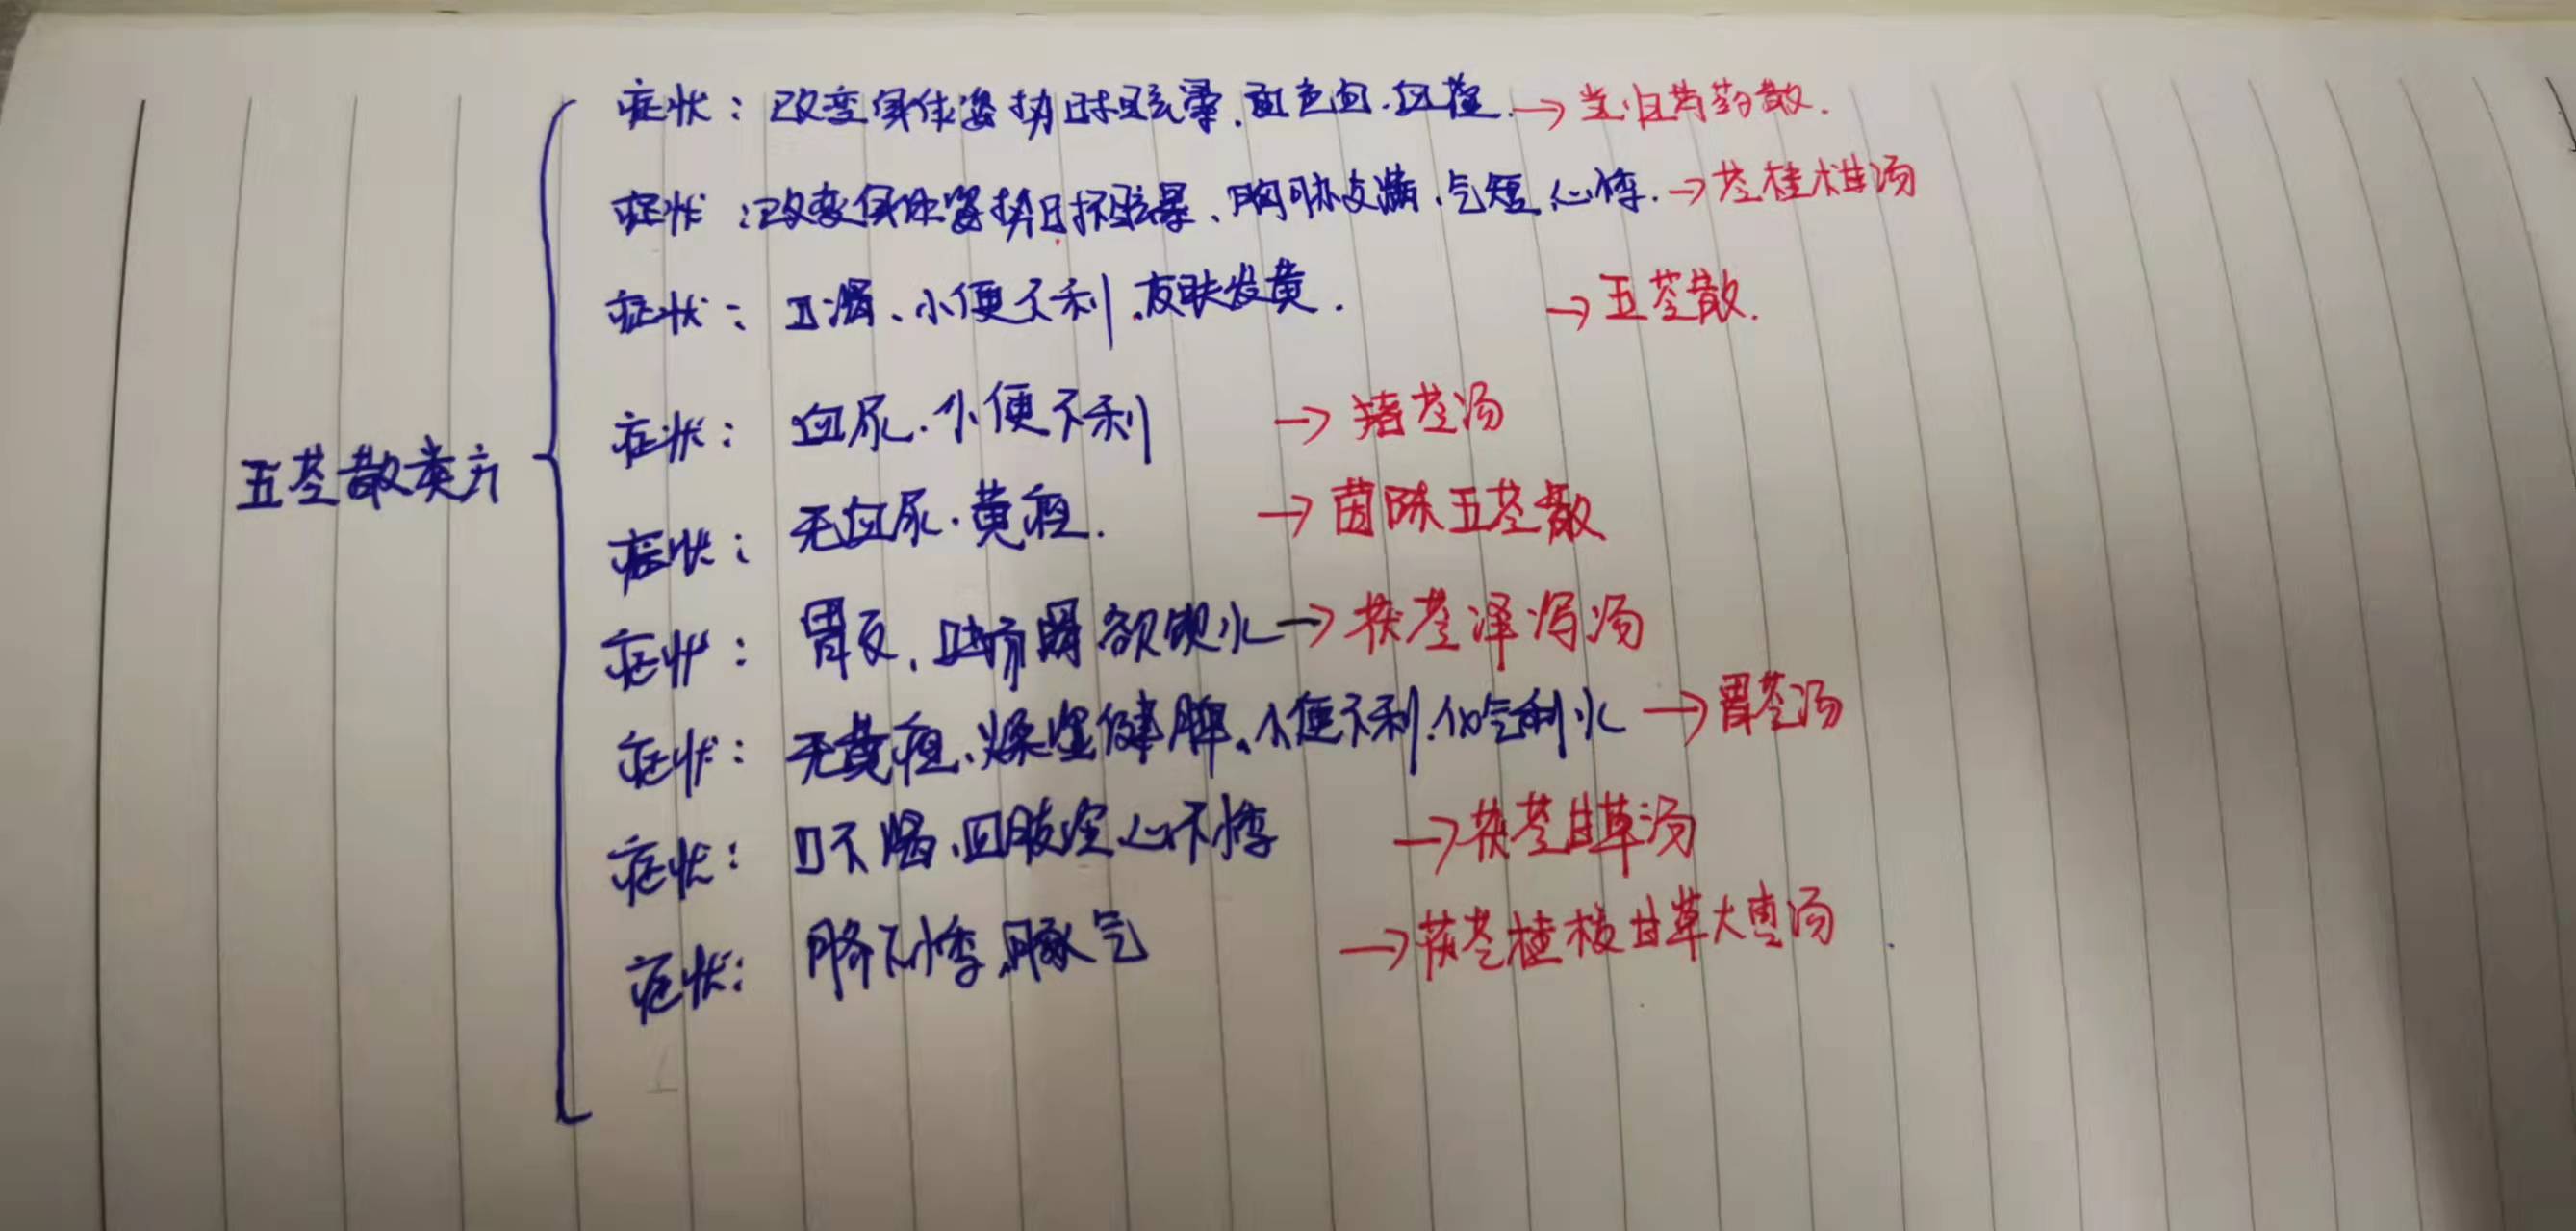 五苓散类方
症状：改变身体姿势时眩晕、面色白、血虚.→当归芍药散.
症状：改变身体姿势时眩晕、胸胁支满、气短、心悸.→苓桂术甘汤
症状：口渴、小便不利、皮肤发黄.→五苓散.
症状：血尿、小便不利→猪苓汤
症状：无血尿、黄疸.→茵陈五苓散
症状：胃反、吐而渴欲饮水→茯苓泽泻汤
症状：无黄疸、燥湿健脾、小便不利、化气利水→胃苓汤
症状：口不渴、四肢冷、心下悸→茯苓甘草汤
症状：脐下悸、豚气→茯苓桂枝甘草大枣汤